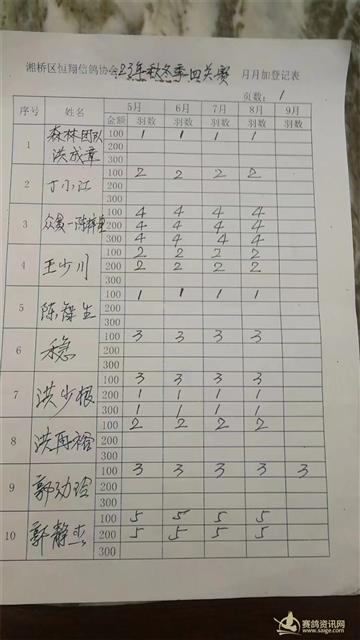 湘桥区恒翔信鸽协会23年秋冬季四关赛 月月加登记表
页数: 1
序号 姓名 5月 6月 7月 8月 9月
金额 羽数 羽数 羽数 羽数 羽数
1 森林团队 洪成章 100 1 1 1 1
200
300
2 丁小江 100 2 2 2 2
200
300
3 100 4 4 4 4
200 4 4 4 4
300 4 4 4 4
4 王少川 100 2 2 2 2
200 2 2 2 2
300
5 陈 生 100 1 1 1 1
200
300
6 稳 100 3 3 3 3
200
300
7 洪少根 100 3 3 3 3
200 1 1 1 1
300 1 1 1 1
8 洪再裕 100 2 2 2 2
200
300
9 郭劲玲 100 3 3 3 3 3
200
300
10 郭静 100 5 5 5 5
200 5 5 5 5
300
赛鸽资讯网
www.saige.com